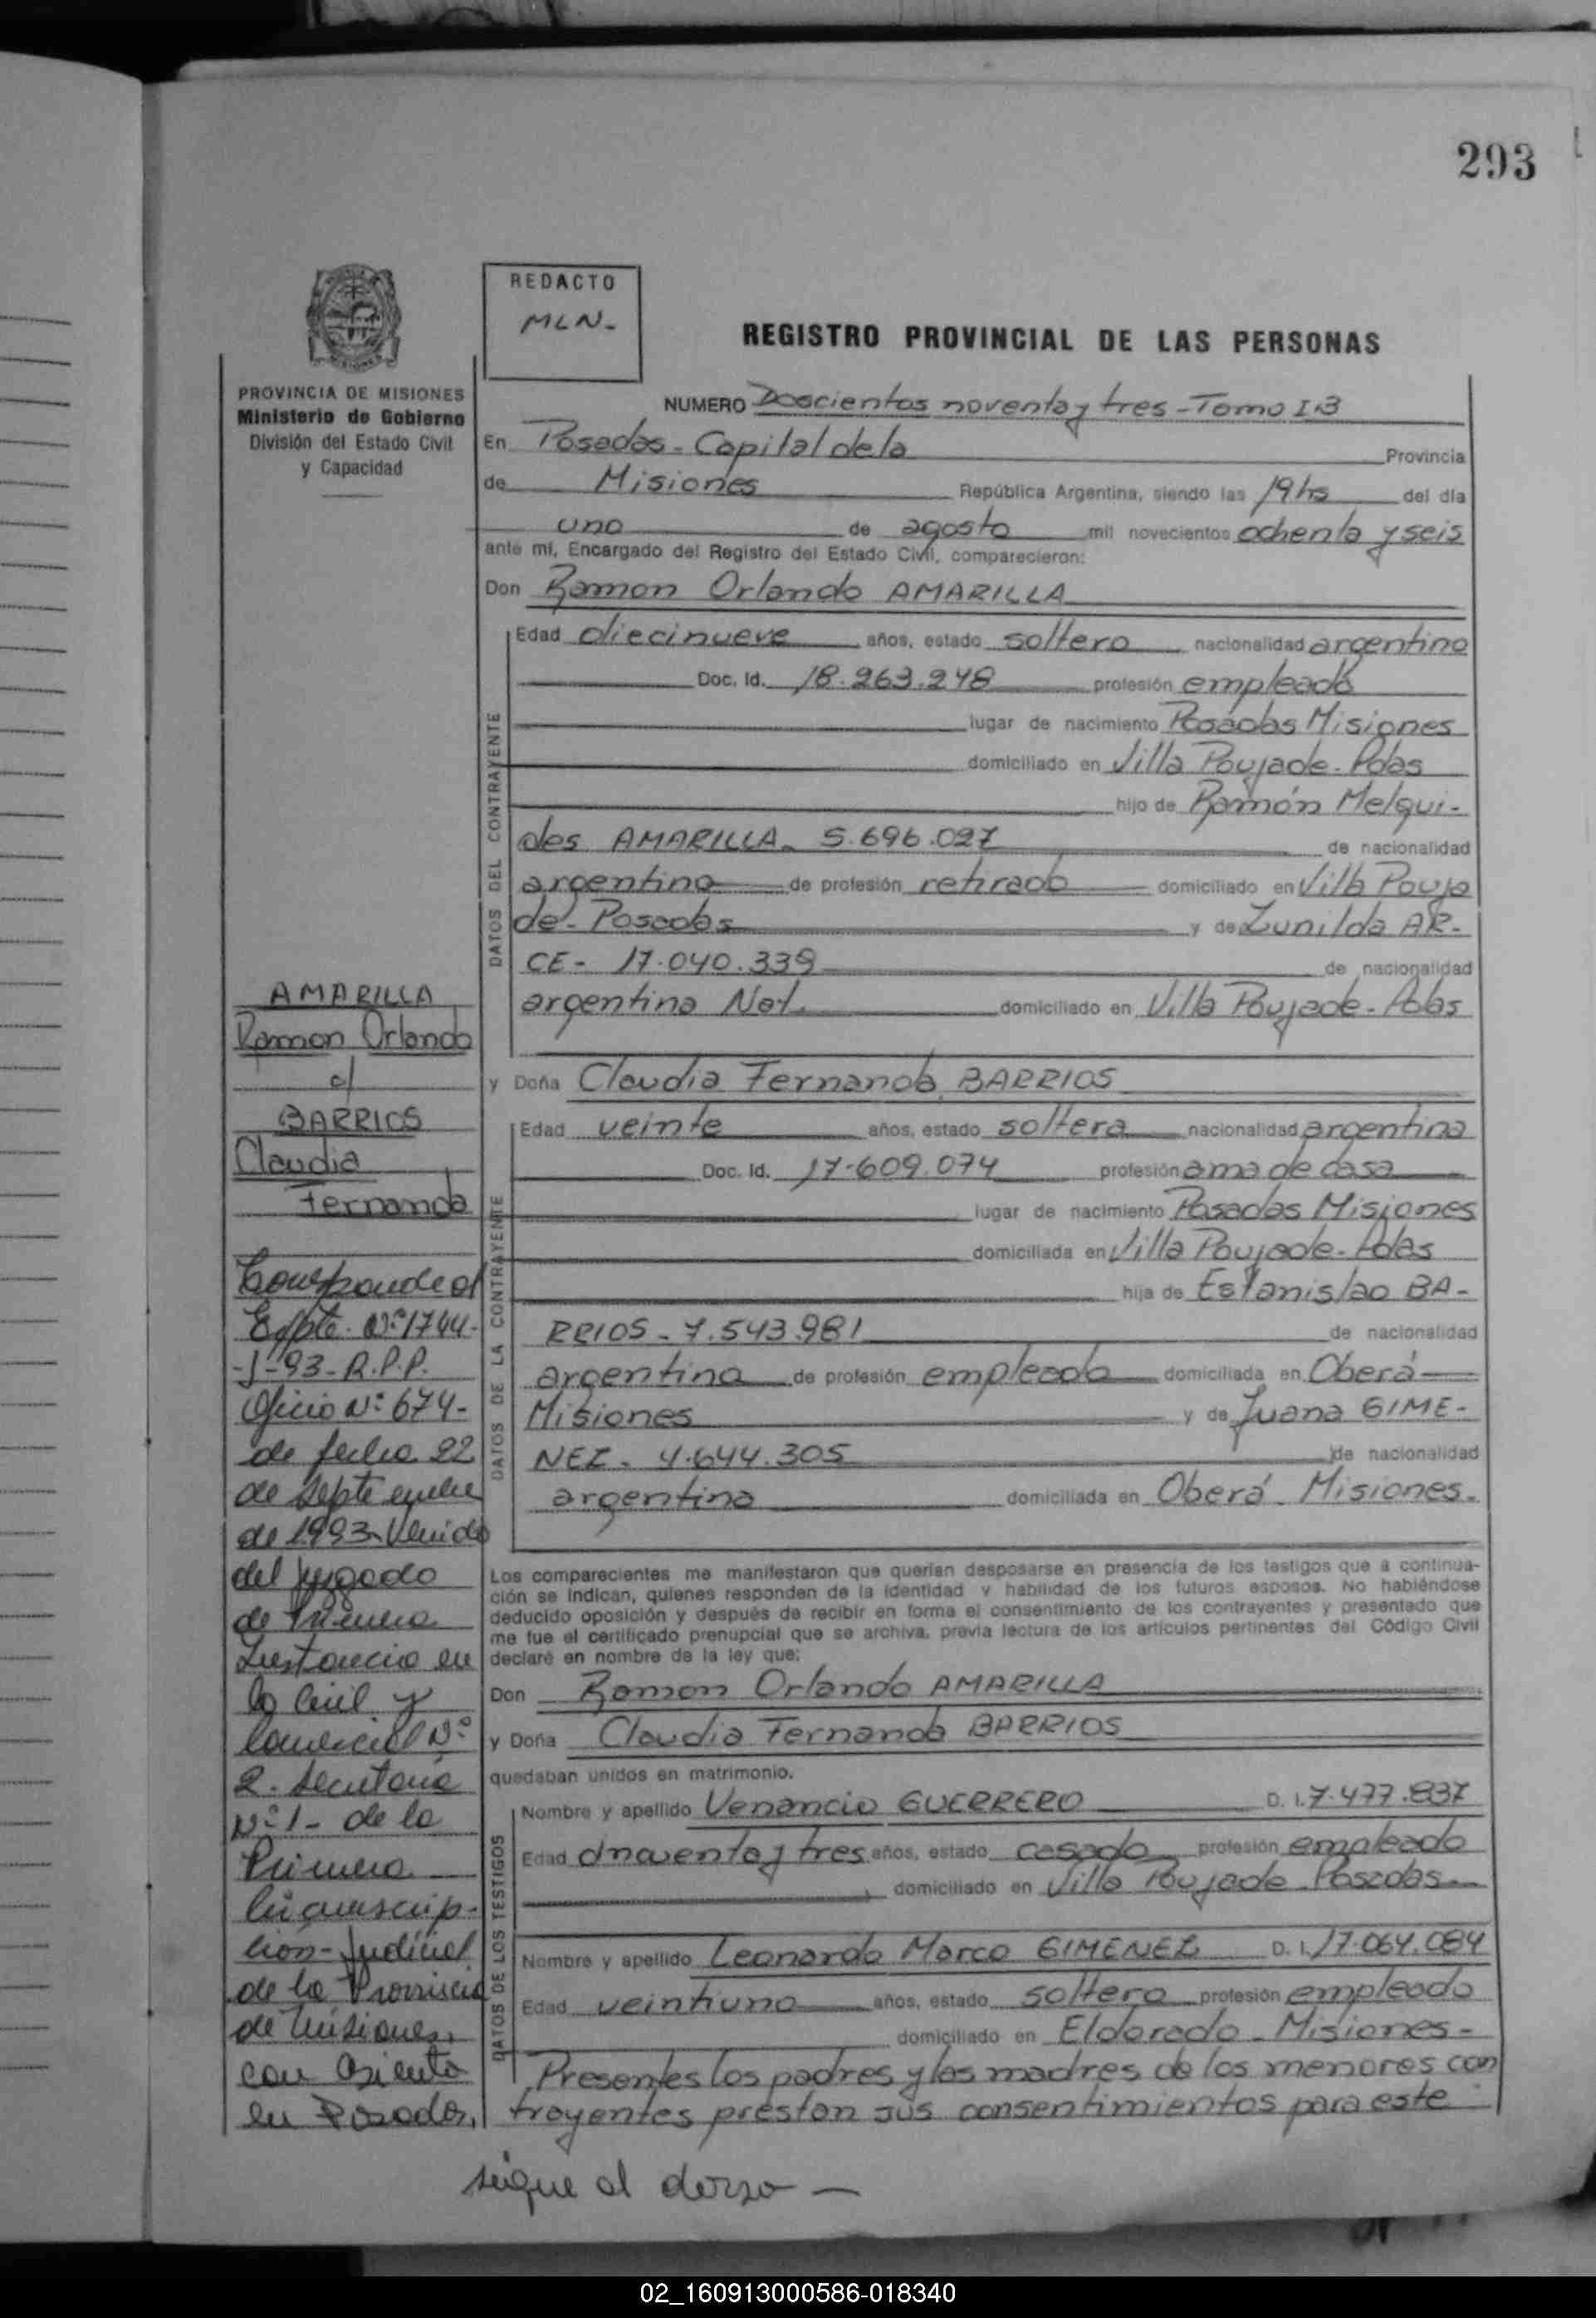 293
REDACTO
MLN-
REGISTRO PROVINCIAL DE LAS PERSONAS
PROVINCIA DE MISIONES
Ministerio de Gobierno
División del Estado Civil
y Capacidad
NUMERO Doscientos noventa y tres - Tomo I-3
En Posadas - Capital de la Provincia
de Misiones República Argentina, siendo las 19 hs del día
uno de agosto mil novecientos ochenta y seis
ante mí, Encargado del Registro del Estado Civil, comparecieron:
Don Ramon Orlando AMARILLA
DATOS DEL CONTRAYENTE
Edad diecinueve años, estado soltero nacionalidad argentino
Doc. Id. 18.263.248 profesión empleado
lugar de nacimiento Posadas Misiones
domiciliado en Villa Poujade - Pdas
hijo de Ramón Melqui-
des AMARILLA - 5.696.027 de nacionalidad
argentina de profesión retirado domiciliado en Villa Pouja
de - Posadas y de Zunilda AR-
CE - 17.040.339 de nacionalidad
argentina Nat. domiciliado en Villa Poujade - Pdas
y Doña Claudia Fernanda BARRIOS
DATOS DE LA CONTRAYENTE
Edad veinte años, estado soltera nacionalidad argentina
Doc. Id. 17.609.074 profesión ama de casa
lugar de nacimiento Posadas Misiones
domiciliada en Villa Poujade - Pdas
hija de Estanislao BA-
RRIOS - 7.543.981 de nacionalidad
argentina de profesión empleado domiciliada en Oberá
Misiones y de Juana GIME-
NEZ - 4.644.305 de nacionalidad
argentina domiciliada en Oberá - Misiones -
Los comparecientes me manifestaron que querían desposarse en presencia de los testigos que a continua-
ción se indican, quienes responden de la identidad y habilidad de los futuros esposos. No habiéndose
deducido oposición y después de recibir en forma el consentimiento de los contrayentes y presentado que
me fue el certificado prenupcial que se archiva, previa lectura de los artículos pertinentes del Código Civil
declaré en nombre de la ley que:
Don Ramon Orlando AMARILLA
y Doña Claudia Fernanda BARRIOS
quedaban unidos en matrimonio.
DATOS DE LOS TESTIGOS
Nombre y apellido Venancio GUERRERO D. I. 7.477.837
Edad cincuenta y tres años, estado casado profesión empleado
domiciliado en Villa Poujade - Posadas -
Nombre y apellido Leonardo Marco GIMENEZ D. I. 17.064.084
Edad veintiuno años, estado soltero profesión empleado
domiciliado en Eldorado - Misiones -
Presentes los padres y las madres de los menores con
trayentes prestan sus consentimientos para este
sigue al dorso —
AMARILLA
Ramon Orlando
c/
BARRIOS
Claudia
Fernanda
Corresponde al
Expte. Nº 1744-
-J-93-R.P.P.
Oficio Nº 674-
de fecha 22
de Septiembre
de 1993 - Venido
del Juzgado
de Primera
Instancia en
lo Civil y
Comercial Nº
2. Secretaria
Nº 1 - de la
Primera
Circunscrip-
cion - Judicial
de la Provincia
de Misiones,
con asiento
en Posadas,
02_160913000586-018340